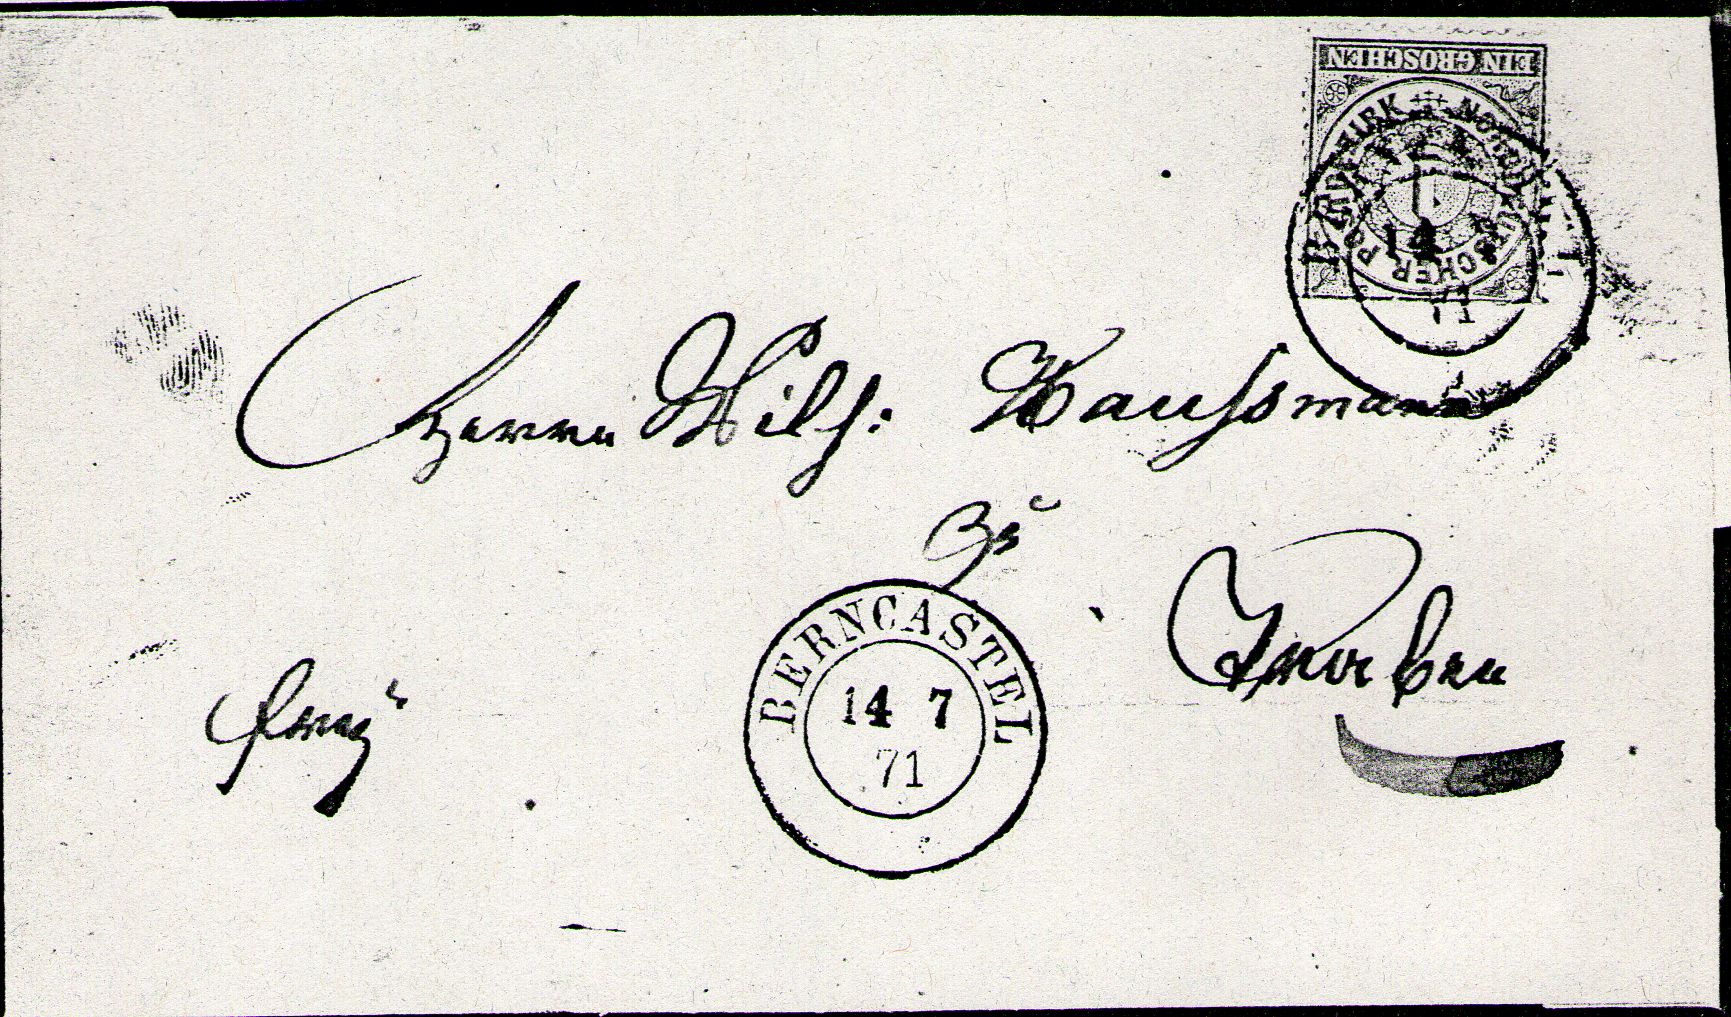 EIN GROSCHEN
NORDDEUTSCHER POSTBEZIRK
1
14
71
Herrn Wilh: Haussmann
Zu
BERNCASTEL
14 7
71